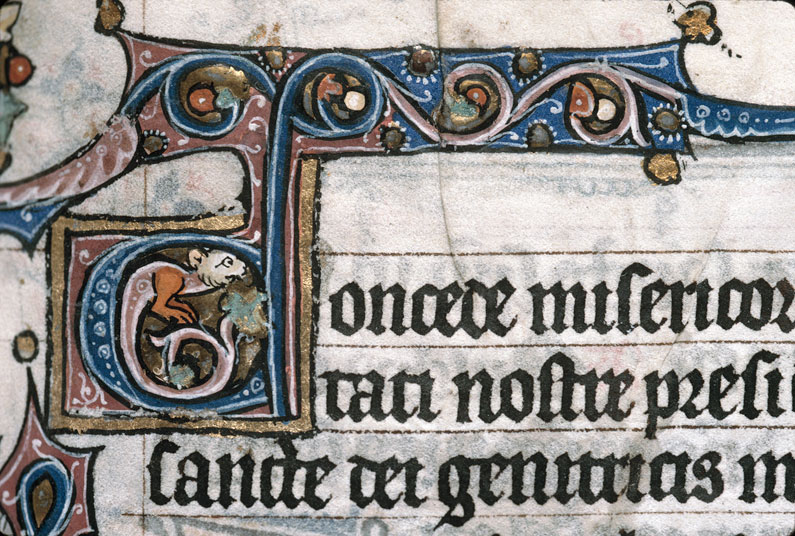 Concede misericor
tati nostre presi
sancte dei genitricis m